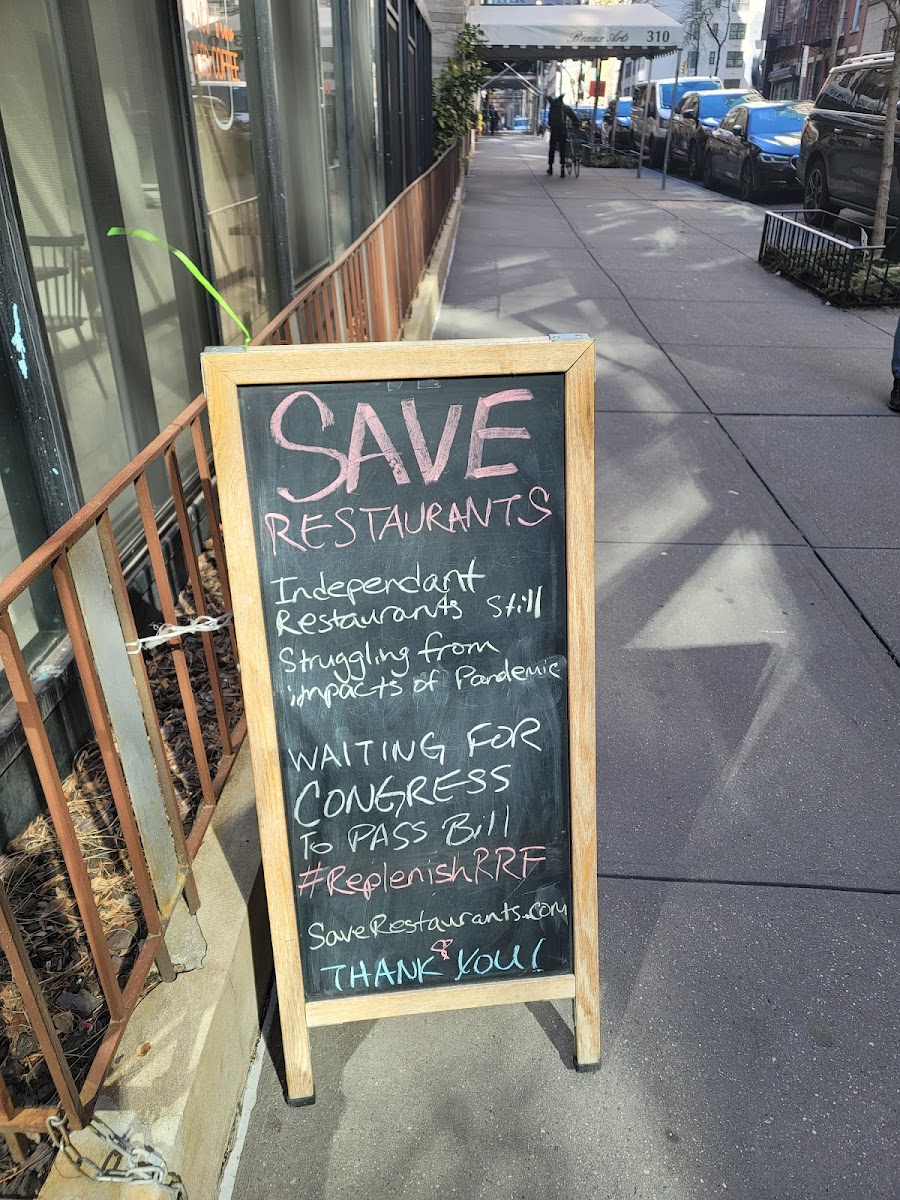 COFFEE
Beaux Arts 310
SAVE
RESTAURANTS
Independant
Restaurants Still
Struggling from
impacts of Pandemic
WAITING FOR
CONGRESS
To PASS Bill
#ReplenishRRF
SaveRestaurants.com
THANK YOU!